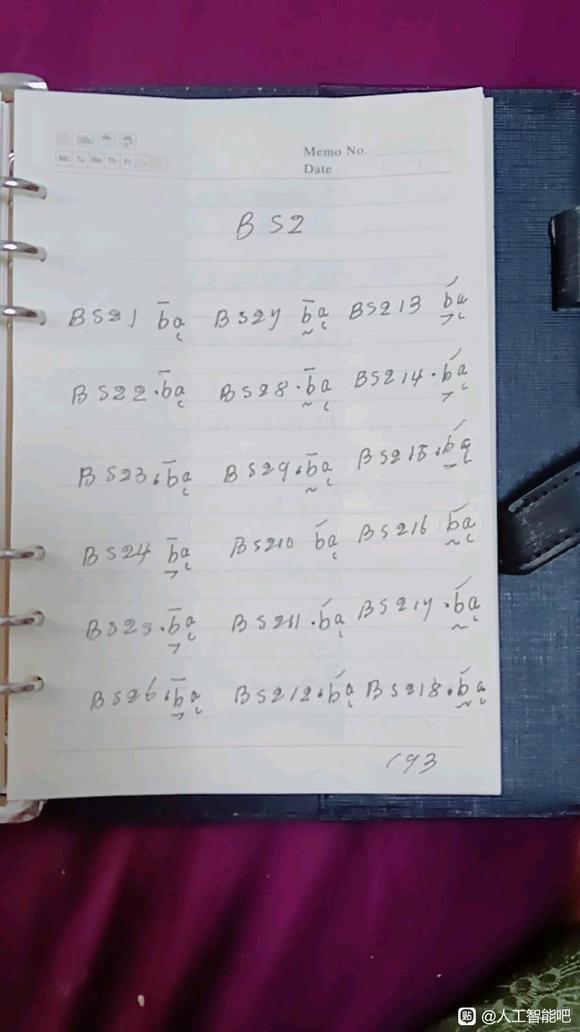 Mo Tu We Th Fr Sa Su
Memo No.
Date
B S2
BS21 b̄ą̣ BS27 b̰̄ą BS213 b́ą
BS22 · b̄ą BS28 · b̰̄ą BS214 · b́ą
BS23 · b̄ą BS29 · b̰̄ą BS215 · b́ą
BS24 b̄ą BS210 b́ą BS216 b̰́ą
BS25 · b̄ą BS211 · b́ą BS217 · b̰́ą
BS26 · b̄ą BS212 · b́ą BS218 · b̰́ą
193
贴 @人工智能吧